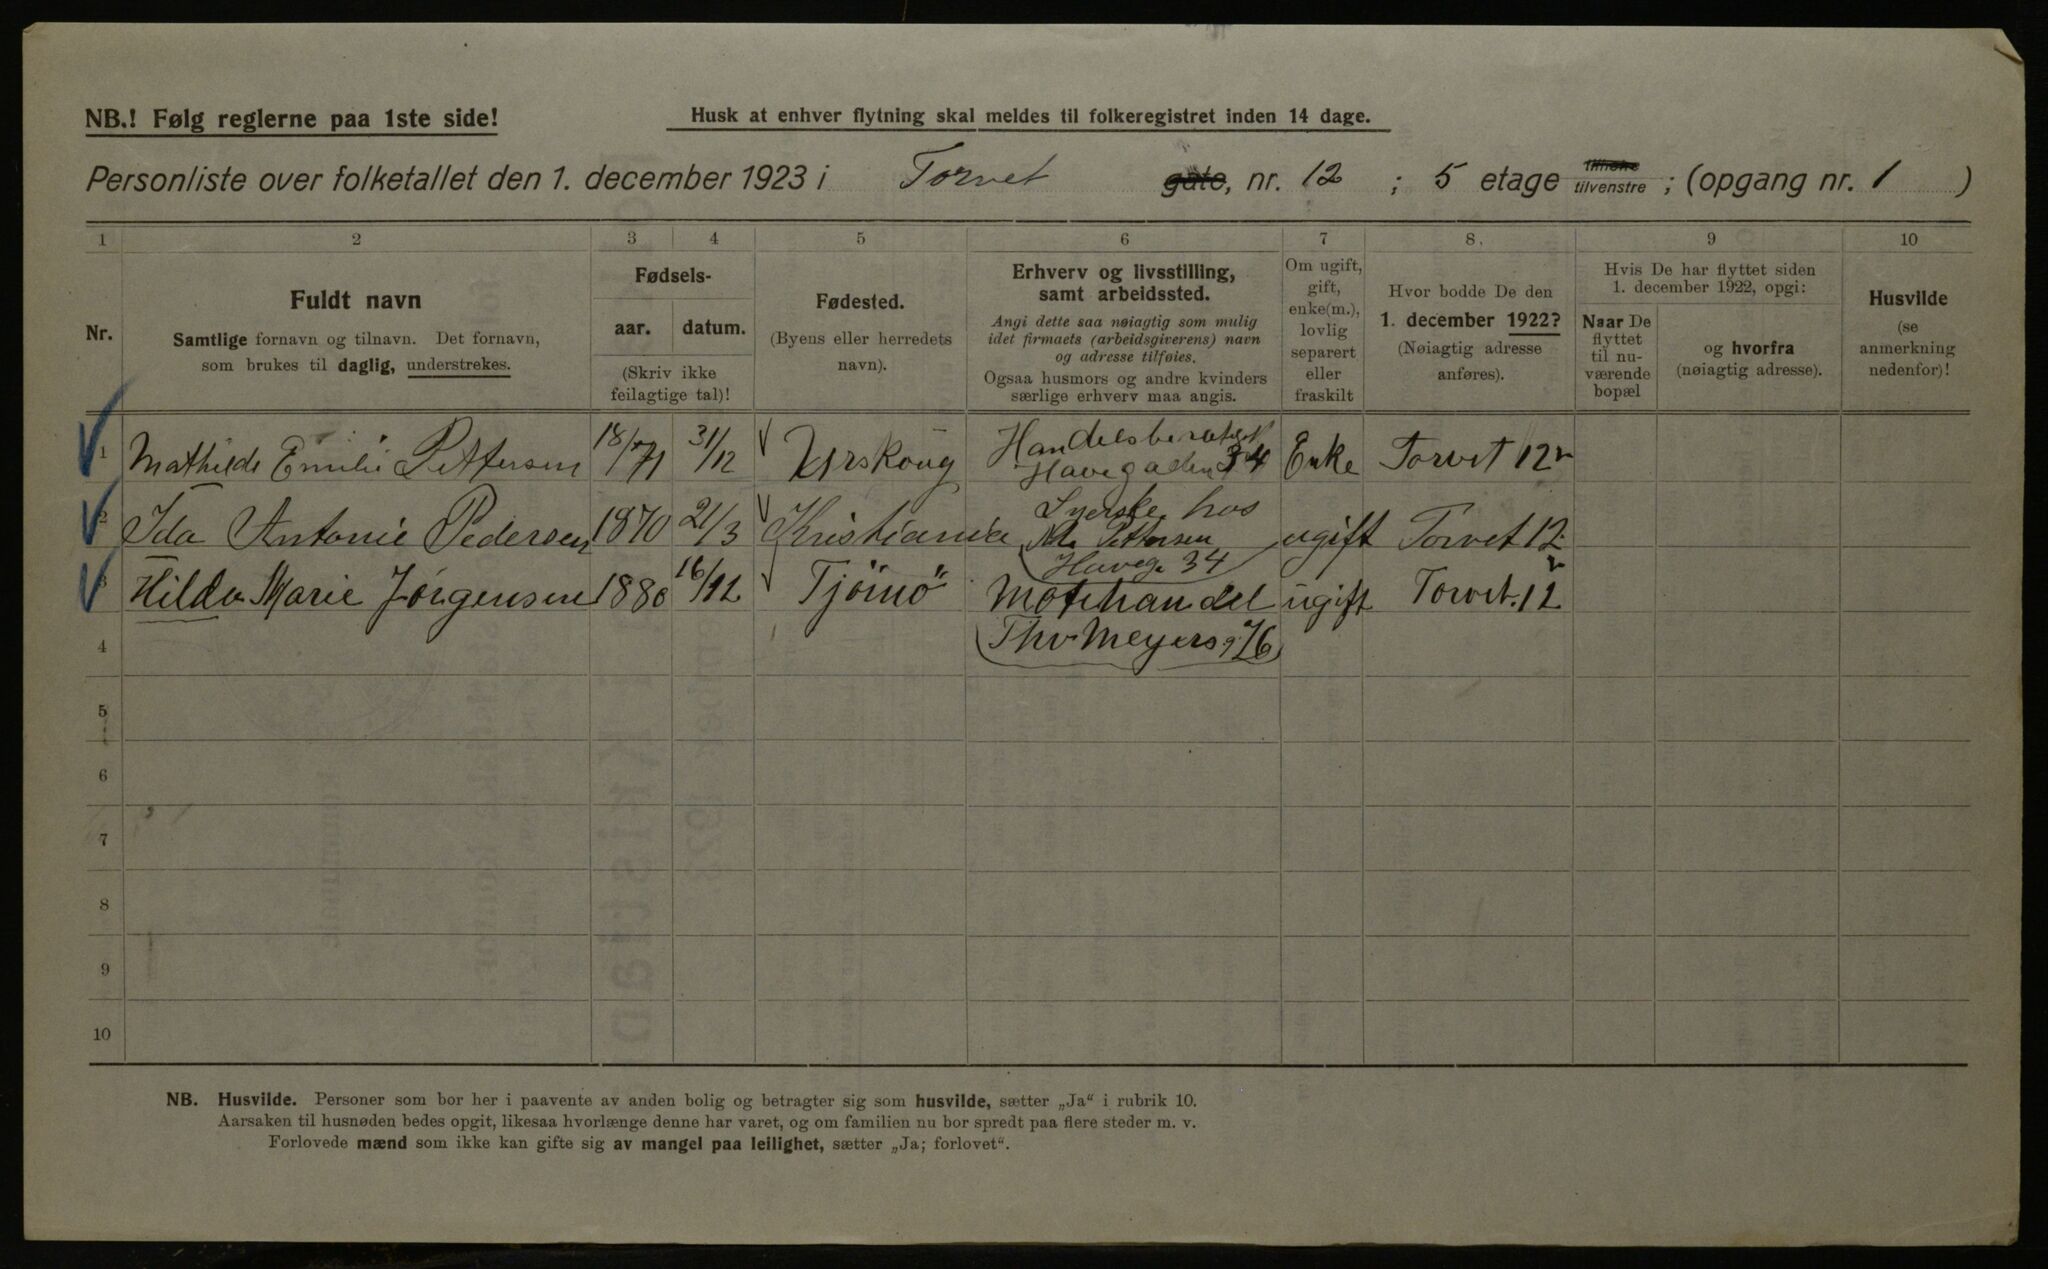 NB.! Følg reglerne paa 1ste side!
Husk at enhver flytning skal meldes til folkeregistret inden 14 dage.
Personliste over folketallet den 1. december 1923 i Torvet gate, nr. 12 ; 5 etage tilhøire tilvenstre ; (opgang nr. 1 )
1 2 3 4 5 6 7 8. 9 10
Nr.
Fuldt navn
Samtlige fornavn og tilnavn. Det fornavn,
som brukes til daglig, understrekes.
Fødsels-
aar. datum.
(Skriv ikke
feilagtige tal)!
Fødested.
(Byens eller herredets
navn).
Erhverv og livsstilling,
samt arbeidssted.
Angi dette saa nøiagtig som mulig
idet firmaets (arbeidsgiverens) navn
og adresse tilføies.
Ogsaa husmors og andre kvinders
særlige erhverv maa angis.
Om ugift,
gift,
enke(m.),
lovlig
separert
eller
fraskilt
Hvor bodde De den
1. december 1922?
(Nøiagtig adresse
anføres).
Hvis De har flyttet siden
1. december 1922, opgi:
Naar De
flyttet
til nu-
værende
bopæl
og hvorfra
(nøiagtig adresse).
Husvilde
(se
anmerkning
nedenfor)!
1 Mathilde Emilie Pettersen 18/71 31/12 Urskoug Enke Torvet 12
Havegaden 34
2 Ida Antonie Pedersen 1870 21/3 Kristiania Syerske hos ugift Torvet 12
Pettersen
Haveg. 34
3 Hilda Marie Jörgensen 1880 16/12 Tjömö Motehandel ugift Torvet. 12
4 Thv Meyers g 76
5
6
7
8
9
10
NB. Husvilde. Personer som bor her i paavente av anden bolig og betragter sig som husvilde, sætter „Ja“ i rubrik 10.
Aarsaken til husnøden bedes opgit, likesaa hvorlænge denne har varet, og om familien nu bor spredt paa flere steder m. v.
Forlovede mænd som ikke kan gifte sig av mangel paa leilighet, sætter „Ja; forlovet“.